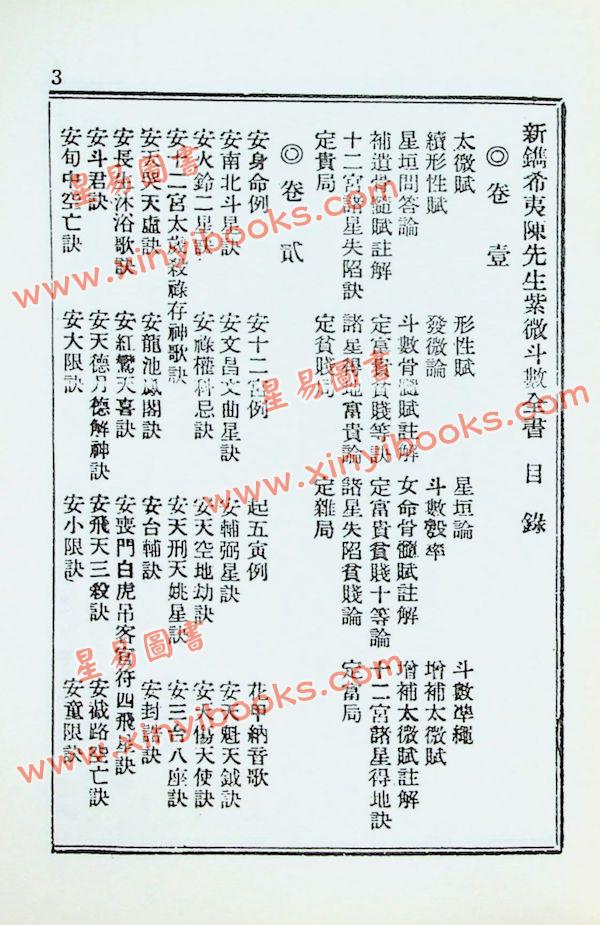 3
新鐫希夷陳先生紫微斗數全書 目錄
◎卷壹
太微賦 形性賦 星垣論 斗數準繩
續形性賦 發微論 斗數彀率 增補太微賦
星垣問答論 斗數骨髓賦註解 女命骨髓賦註解 增補太微賦註解
補遺骨髓賦註解 定富貴貧賤等訣 定富貴貧賤十等論 十二宮諸星得地訣
十二宮諸星失陷訣 諸星得地富貴論 諸星失陷貧賤論 定富局
定貴局 定貧賤局 定雜局
◎卷貳
安身命例 安十二宮例 起五寅例 花甲納音歌
安南北斗星訣 安文昌文曲星訣 安輔弼星訣 安天魁天鉞訣
安火鈴二星訣 安祿權科忌訣 安天空地劫訣 安天傷天使訣
安十二宮太歲殺祿存神歌訣 安天刑天姚星訣 安三台八座訣
安天哭天虛訣 安龍池鳳閣訣 安台輔訣 安封誥訣
安長生沐浴歌訣 安紅鸞天喜訣 安喪門白虎吊客官符四飛星訣
安斗君訣 安天德月德解神訣 安飛天三殺訣 安截路空亡訣
安旬中空亡訣 安大限訣 安小限訣 安童限訣
星易圖書
www.xinyibooks.com
星易圖書
www.xinyibooks.com
星易圖書
www.xinyibooks.com